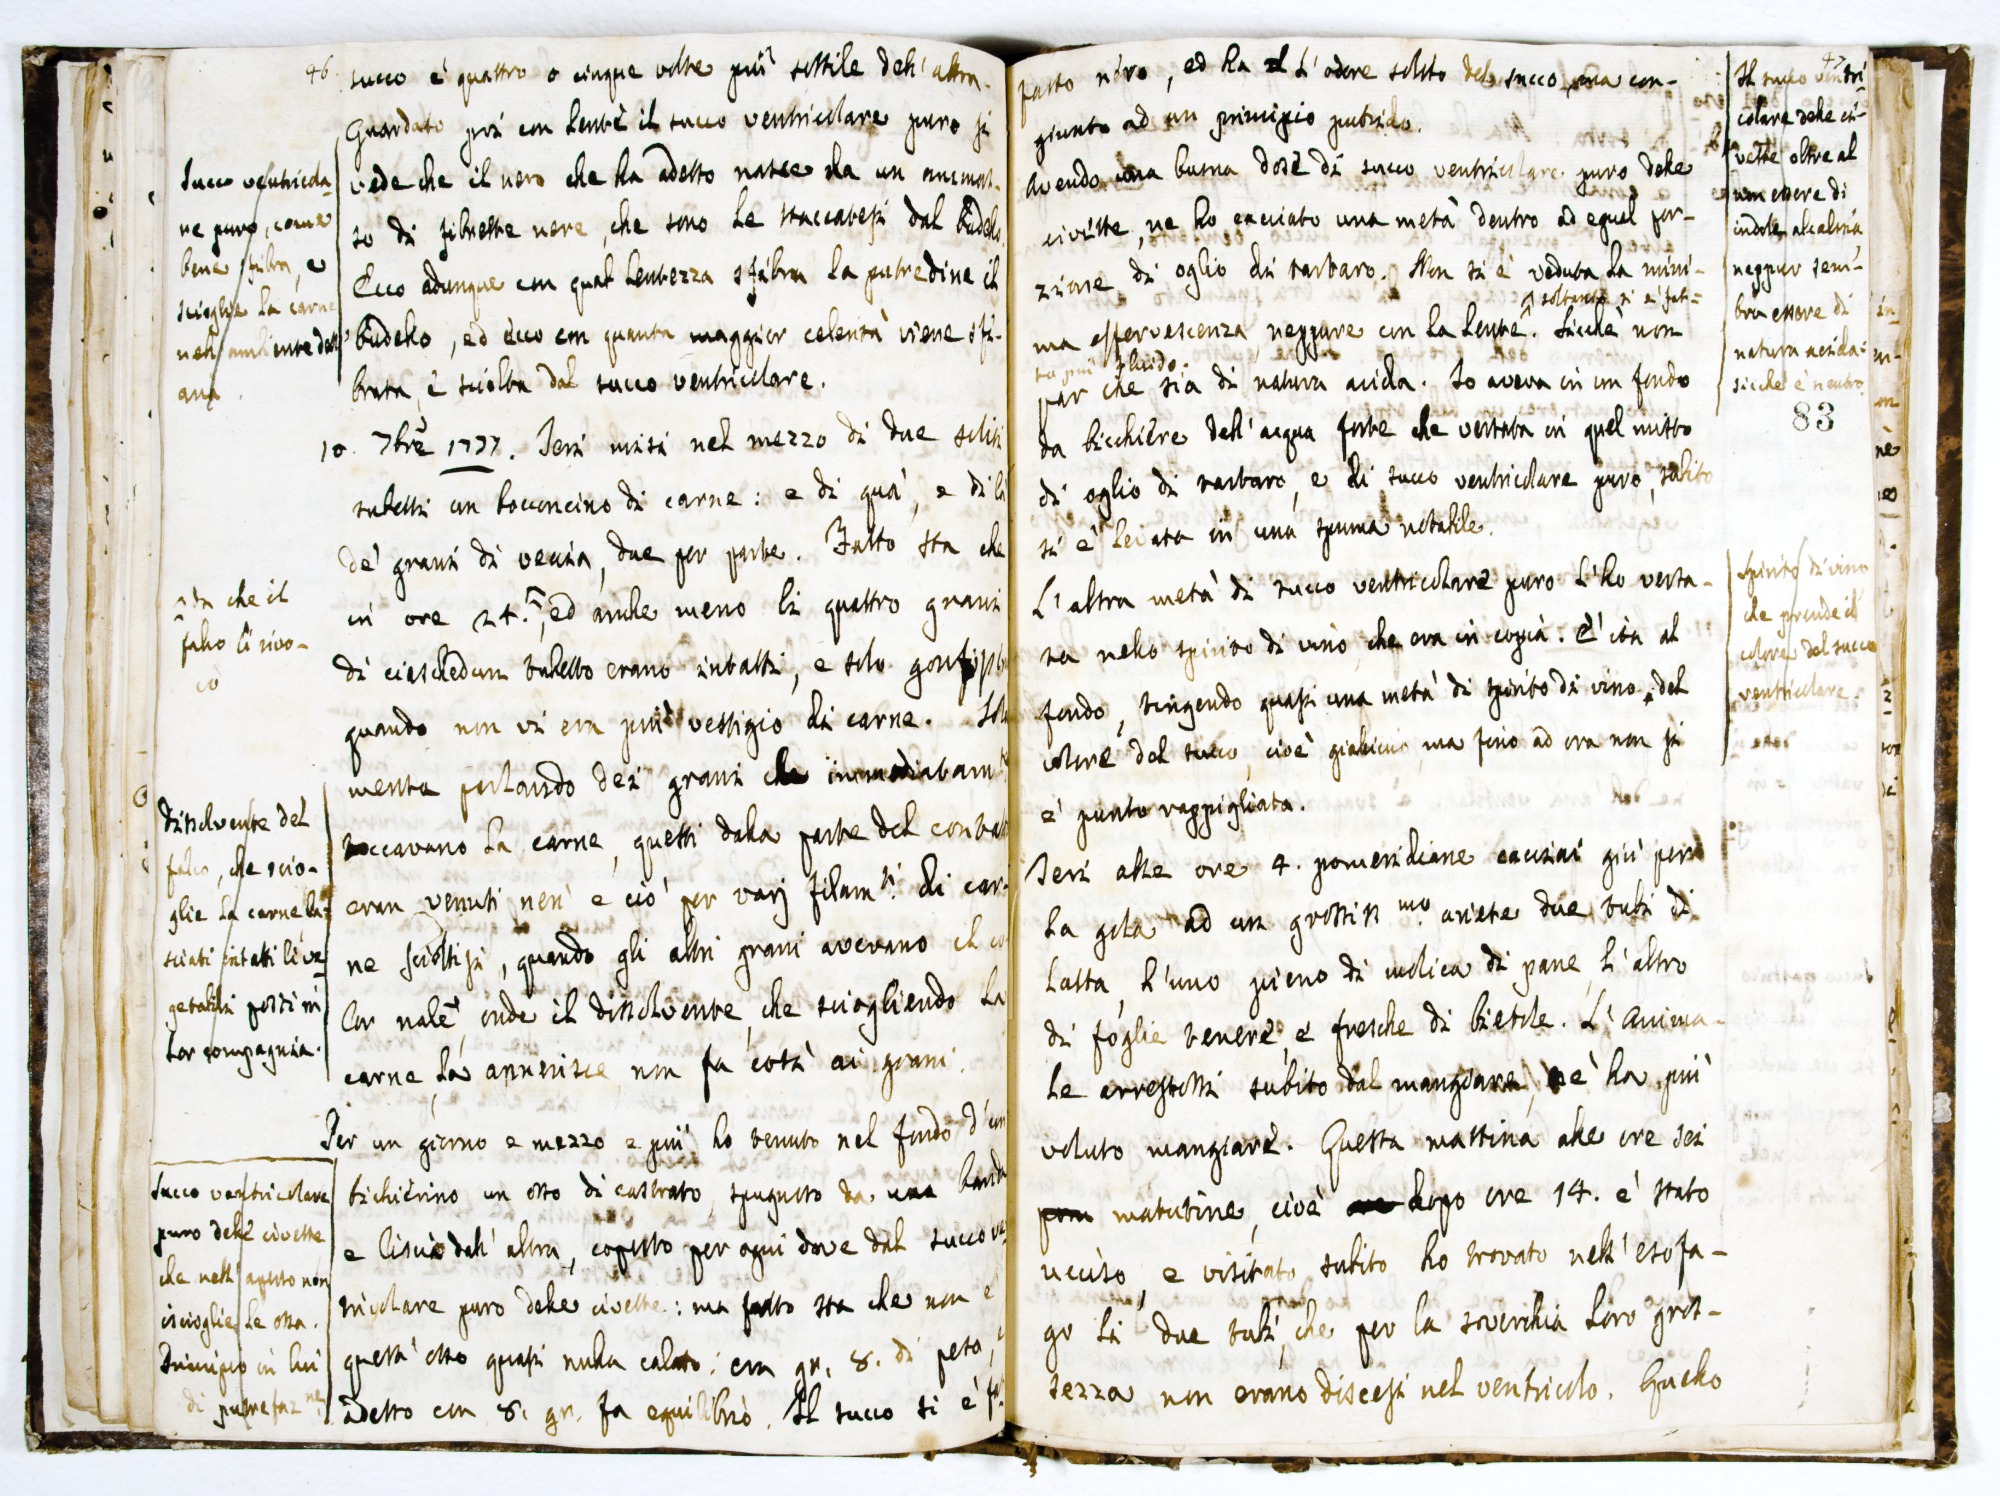 46.
succo è quattro o cinque volte più sottile dell'altra.
Guardato poi con lente il succo ventricolare puro si
vede che il nero che ha adesso nasce da un ammas-
so di fibrette nere, che sono le staccatesi dal budello.
Ecco adunque con qual lentezza sfibra la putredine il
budello, ed ecco con quanta maggior celerità viene sfi-
brata, e sciolta dal succo ventricolare.
10. 7bre 1777. Jeri misi nel mezzo di due soliti
tubetti un bocconcino di carne: e di quà, e di là
de' grani di veccia, due per parte. Fatto sta che
in ore 24.^, ed anche meno li quattro grani
di ciaschedun tubetto erano intatti, e solo gonfi
quando non vi era più vestigio di carne. Sola
mente parlando dei grani che immediatam.te
toccavano la carne, questi dalla parte del contatto
eran venuti neri e ciò per varj filam.ti di car-
ne scioltisi, quando gli altri grani avevano il co
lor nale, onde il dissolvente, che sciogliendo la
carne la annerisce, non fa così ai grani.
Per un giorno e mezzo e più ho tenuto nel fondo d'un
bichierino un osso di castrato, spugnoso da una banda
e liscio dall'altra, coperto per ogni dove dal succo ven
tricolare puro delle civette: ma fatto sta che non è
quest'osso quasi nulla calato: era gr. 8. di peso,
adesso con 8. gr. fa equilibrio. Il succo si è
Succo ventricola
re puro, come
bene sfibra, e
scioglie la carne
nell'ambiente dell'
aria.
^da che il
falco li rivo-
cò
Dissolvente del
falco, che scio-
glie la carne la-
sciati intatti li ve-
getabili posti in
lor compagnia.
Succo ventricolare
puro delle civette
che nell'aperto non
iscioglie le ossa.
Principio in lui
di putrefaz.ne
47
fatto nero, ed ha l'odore solito del succo, ma con-
giunto ad un principio putrido.
Avendo una buona dose di succo ventricolare puro delle
civette, ne ho cacciato una metà dentro ad egual por-
zione di oglio di tartaro. Non si è veduta la mini-
ma effervescenza, neppure con la lente^. Sicchè non
^ soltanto si è fat-
to più fluido.
par che sia di natura acida. Io aveva in un fondo
da bicchiere dell'acqua forte che versata in quel misto
di oglio di tartaro, e di succo ventricolare puro, subito
si è levata in una spuma notabile.
L'altra metà di succo ventricolare puro l'ho versa-
ta nello spirito di vino, che era in copia. È ita al
fondo, tingendo quasi una metà di spirito di vino del
colore del succo, cioè gialliccio, ma fino ad ora non si
è punto rappigliata.
Jeri alle ore 4. pomeridiane cacciai giù per
la gola ad un grossiss.mo ariete due tubi di
latta, l'uno pieno di molica di pane, l'altro
di foglie tenere, e fresche di bietole. L'Anima-
le arrestossi subito dal mangiare, nè ha più
voluto mangiare. Questa mattina alle ore sei
pom matutine, cioè dopo ore 14. è stato
ucciso, e visitato subito ho trovato nell'esofa-
go li due tubi, che per la soverchia loro gros-
sezza non erano discesi nel ventricolo. Quello
Il succo ventri-
colare delle ci-
vette oltre al
non essere di
indole alcalina,
neppur sem-
bra essere di
natura acida:
sicchè è neutro
83
Spirito di vino
che prende il
colore del succo
ventricolare.